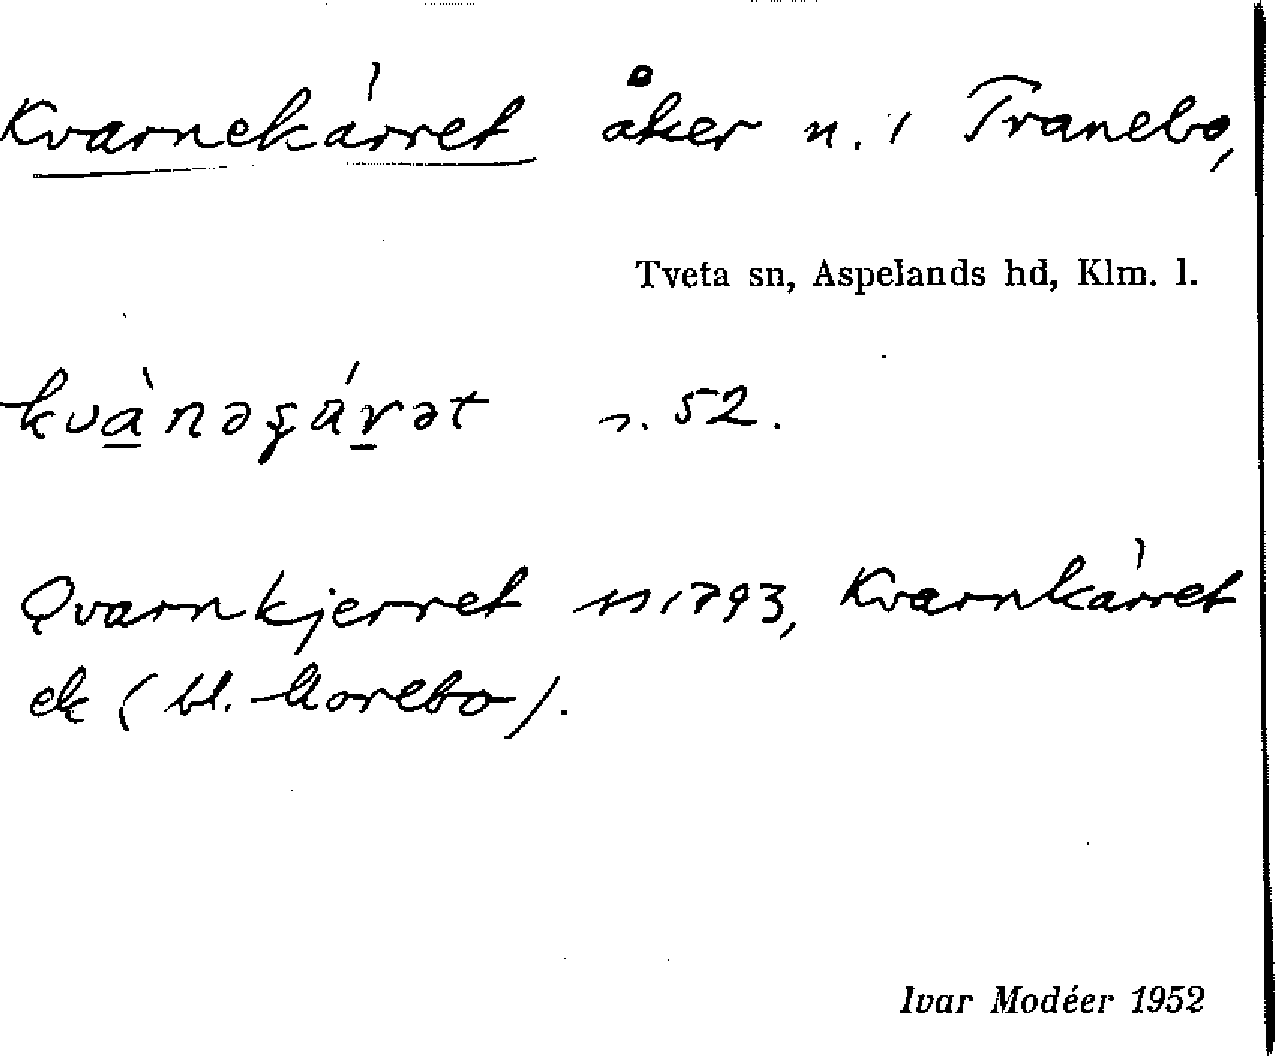 Kvarnekärret åker n. i Tranebo,
Tveta sn, Aspelands hd, Klm. l.
52.
Qvarnkjerret 1793, Kvarnkärret
ek (bl. Morebo).
Ivar Modéer 1952